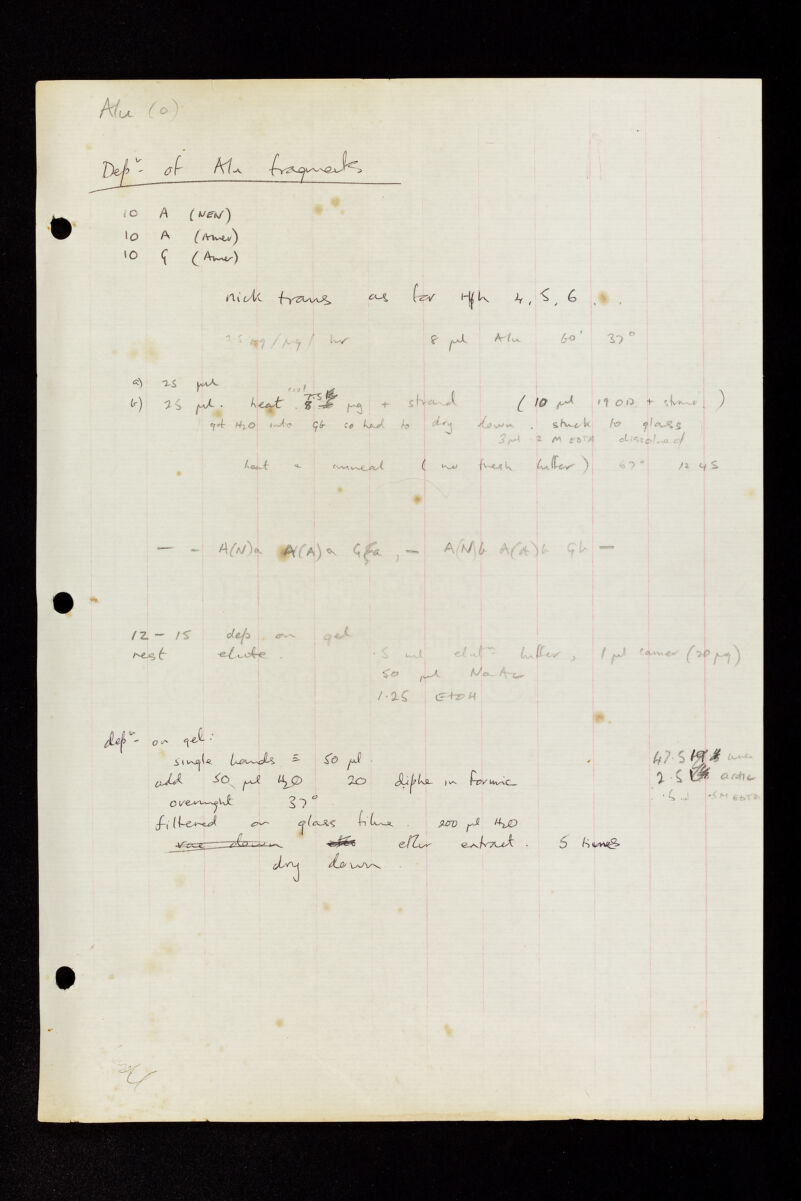 Alu (0)
Depn of Alu fragments
10 A (NEN)
10 A (Amer)
10 G (Amer)
nick trans as for Hph 4, 5, 6 . .
/ hr 8 µl Alu 60' 37°
a) 25 µl
b) 25 µl. heat µg + strand (10 µl 19 OD + )
got H2O into Gb so had to dry down. stuck to glass
3µl .2 M EDTA dissolved
heat anneal (no fresh buffer) 67° 12 45
— - A(N)a A(A)a Ga, — A(N)b A(A)b Gb —
12 - 15 dep on gel
rest elute. .5 ml elutn buffer, 1 µl carrier (20 µg)
50 µl NaAc
1.25 EtOH
depn on gel:
single bands ≡ 50 µl.
47.5
add 50 µl H2O 20 diphe in formic
2.5
overnight 37°
.5 .5M EDTA
filtered on glass fibre. 200 µl H2O
vac down ether extract. 5 times
dry down.